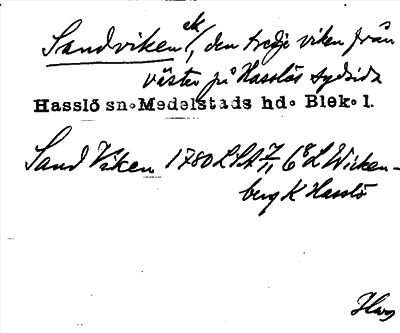 Sandviken (ek, den tredje viken från
väster på Hasslös sydsida
Hasslö sn. Medelstads hd. Blek. l.
Sand Viken 1780 LSA 7/11 6 L Wicken-
berg K Hasslö